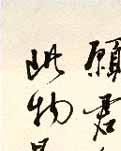 願君
此物